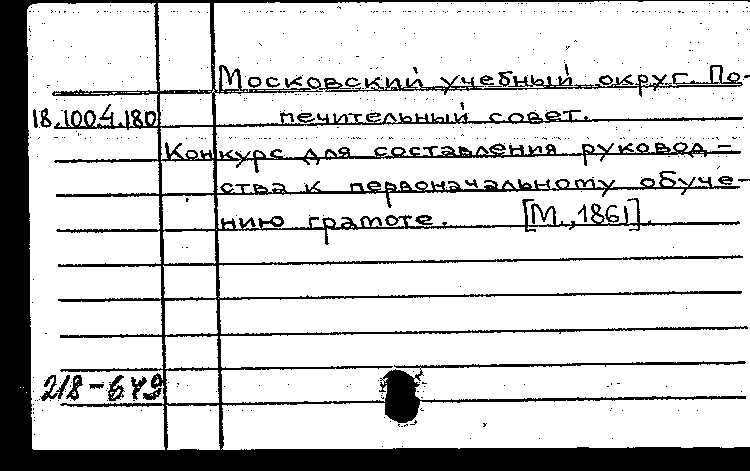 Московский учебный округ. По-
18.1004.180 печительный совет.
Конкурс для составления руковод-
ства к первоначальному обуче-
нию грамоте. [М., 1861].
218-649